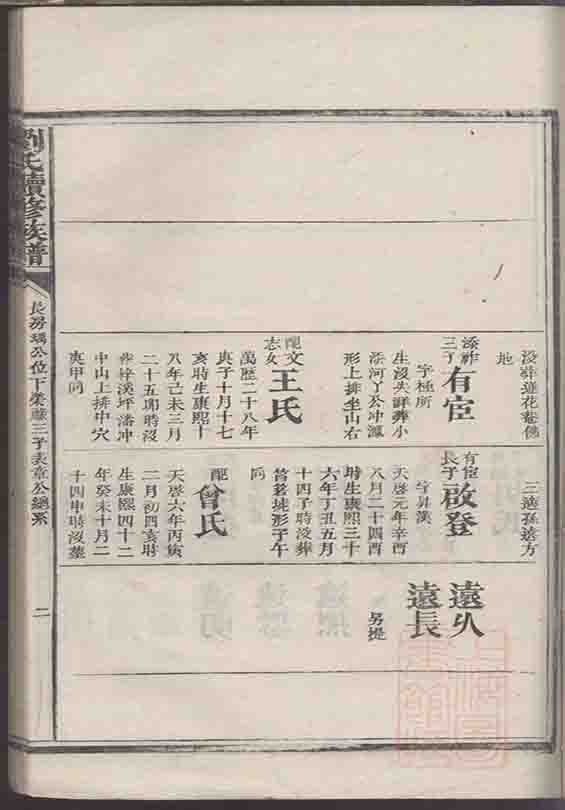 劉氏續修族譜
長房瑀公位下榮
三子表章公總系
二
沒葬蓮花菴佛
地
三子
有宦
字極所
生沒失詳葬小
河丫公冲瀛
形上排坐山右
配文
志女
王氏
萬歷二十八年
庚子十月十七
亥時生康熙十
八年己未三月
二十五卯時沒
葬梓溪坪潘冲
中山上排中穴
庚甲向
三遶孫遠方
有宦
長子
啟登
字昇漢
天啟元年辛酉
八月二十四酉
時生康熙三十
六年丁丑五月
十四子時沒葬
形子午
向
配
曾氏
天啟六年丙寅
二月初四亥時
生康熙四十二
年癸未十月二
十四申時沒葬
遠
遠長
另提